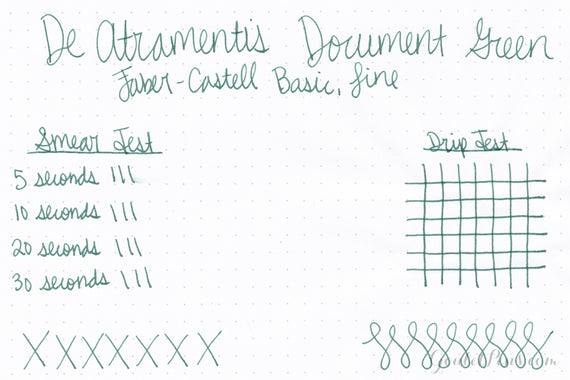 De Atramentis Document Green
Faber-Castell Basic, fine
Smear Test
5 seconds |||
10 seconds |||
20 seconds |||
30 seconds |||
Drip Test
XXXXXXX